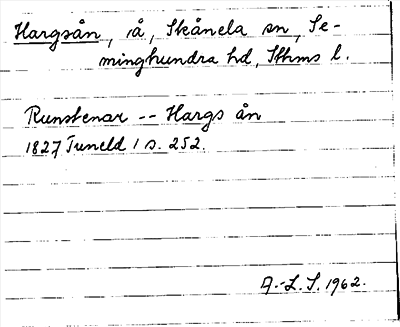 Hargsån, å, Skånela sn, Se-
minghundra hd, Sthms l.
Runstenar -- Hargs ån
1827 Tuneld 1 s. 252.
A.-L. S. 1962.